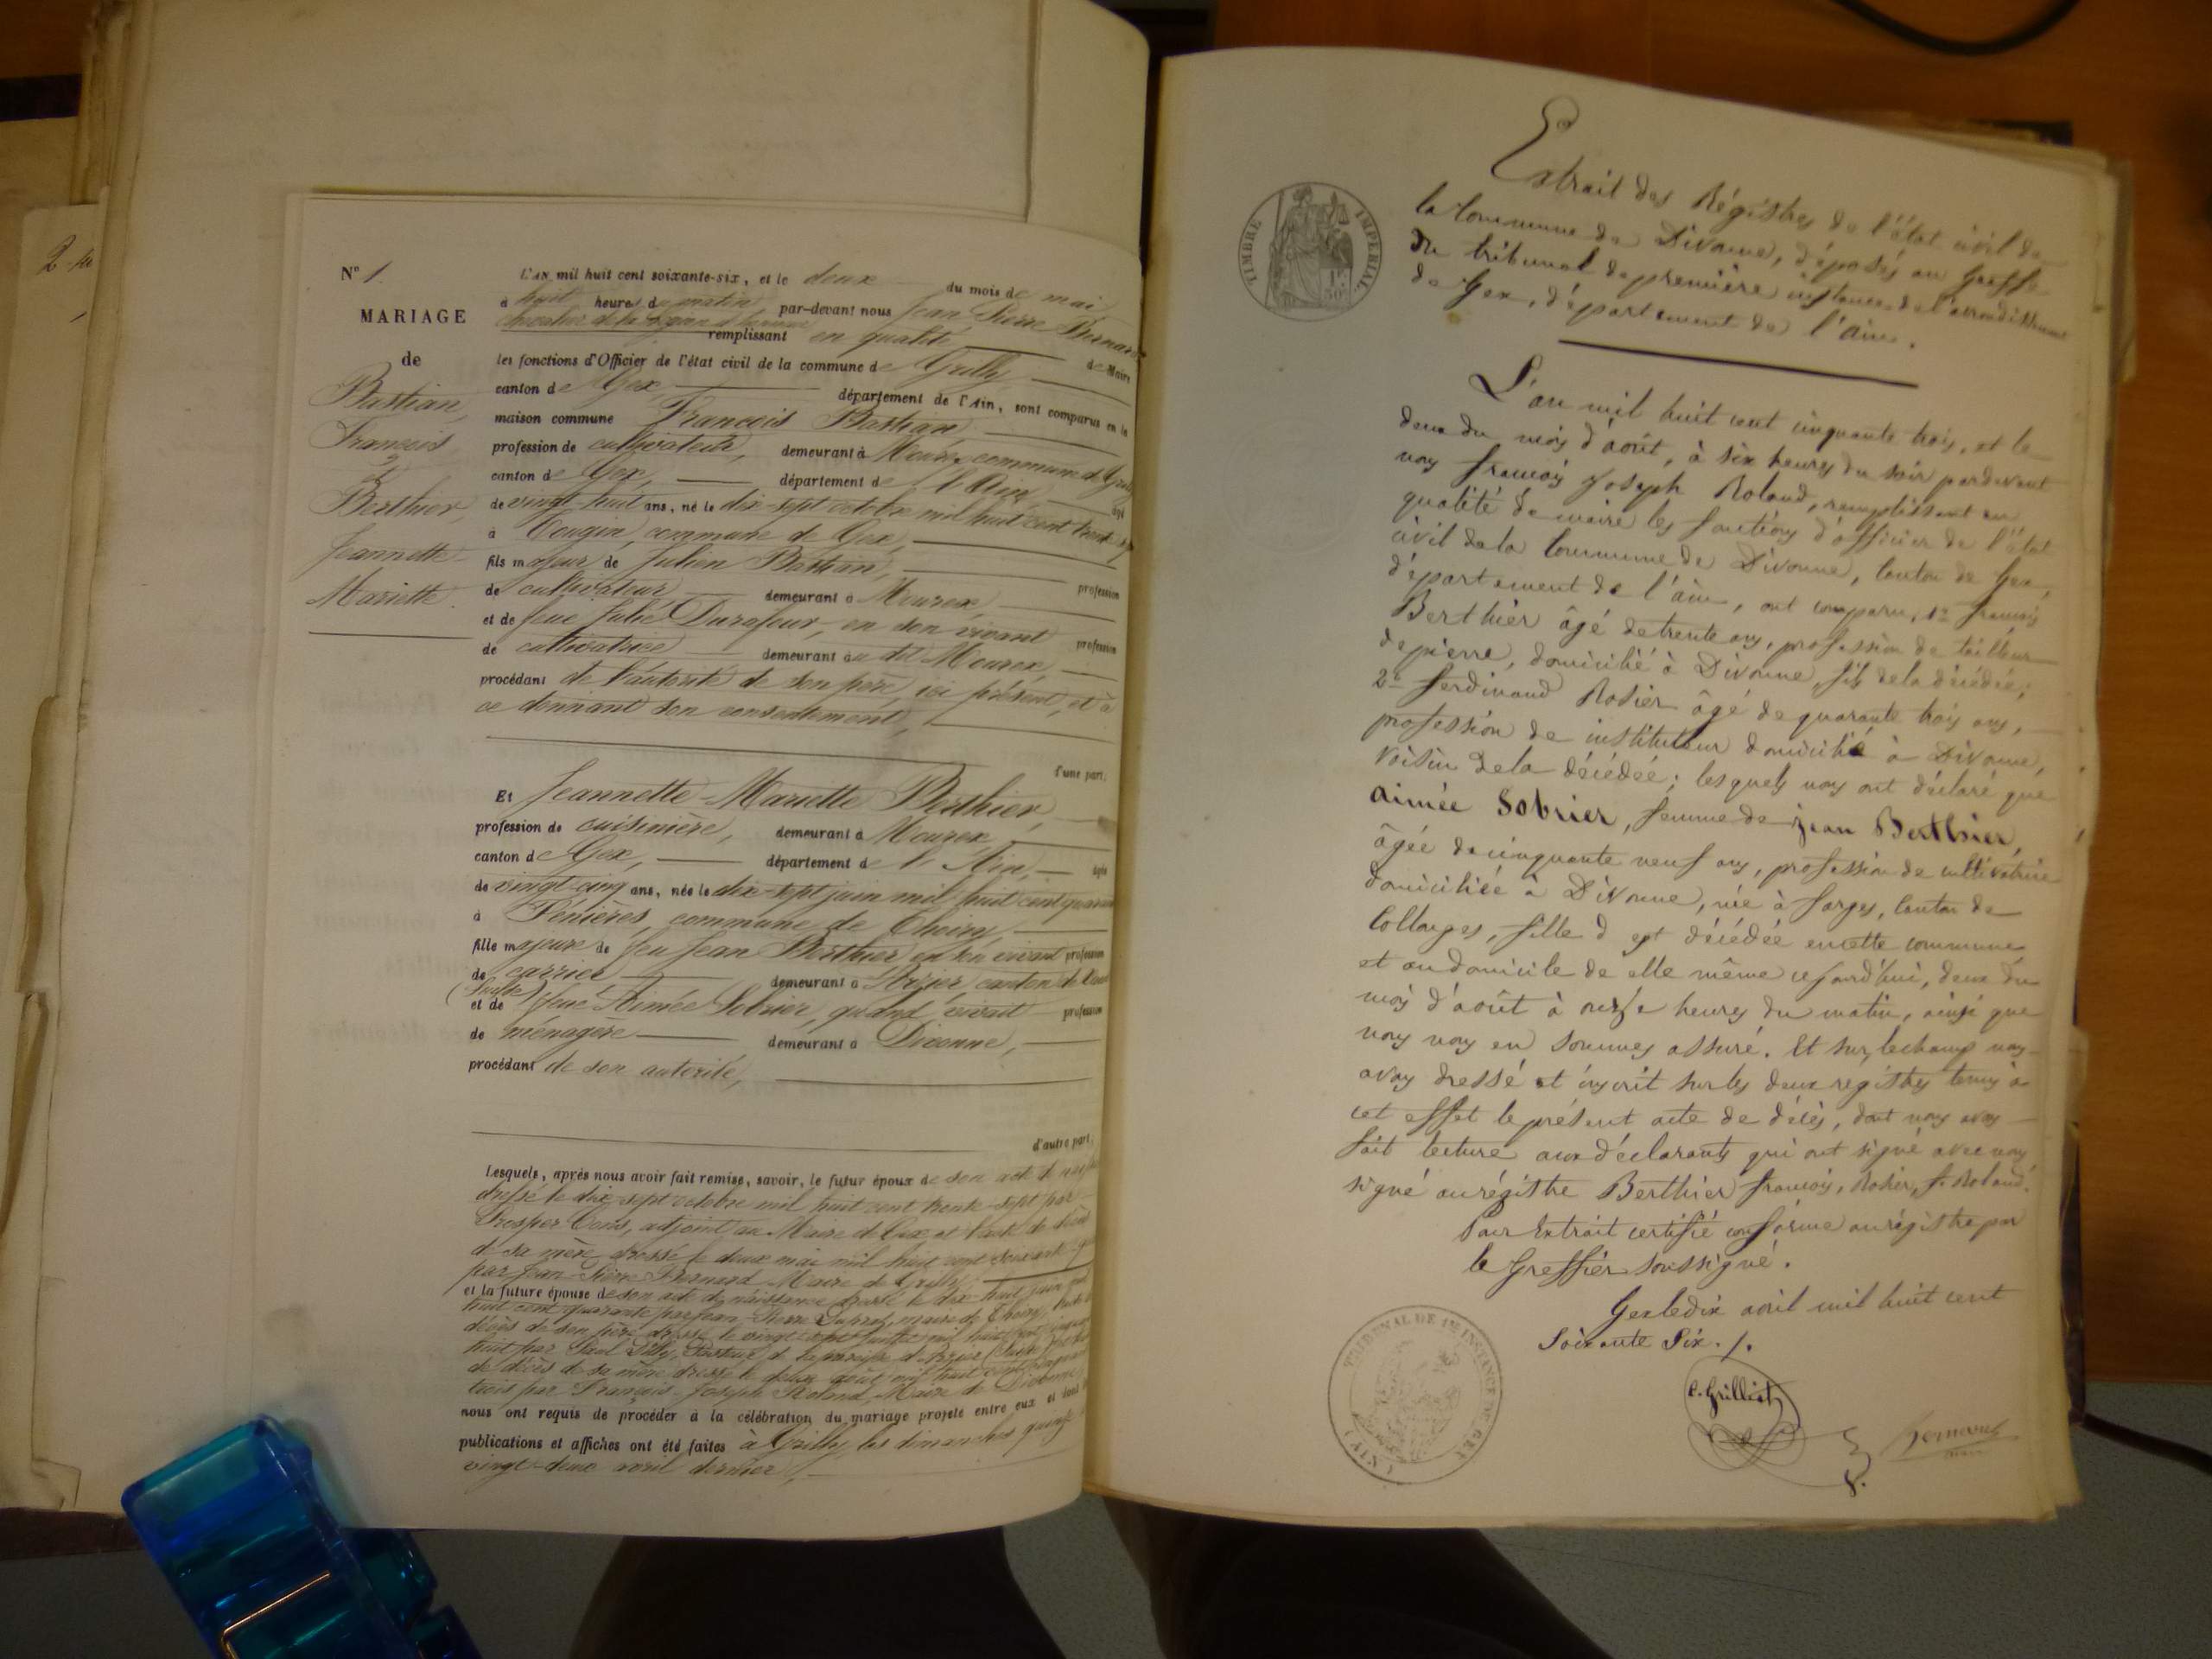 2
N° 1.
MARIAGE
de
Bastian,
François
&
Berthier,
Jeannette
Mariette.
L'AN mil huit cent soixante-six, et le deux du mois de mai
à huit heures du matin par-devant nous Jean Pierre Bernard
chevalier de la légion d'honneur remplissant en qualité de Maire
les fonctions d'Officier de l'état civil de la commune de Grilly
canton de Gex, département de l'Ain, sont comparus en la
maison commune François Bastian,
profession de cultivateur, demeurant à Mourex, commune de Grilly
canton de Gex, département de l'Ain, âgé
de vingt-huit ans, né le dix-sept octobre mil huit cent trente
à Tougin, commune de Gex,
fils majeur de Julien Bastian, profession
de cultivateur demeurant à Mourex,
et de feue Julie Durafour, en son vivant profession
de cultivatrice demeurant au dit Mourex,
procédant de l'autorité de son père, ici présent, et à
ce donnant son consentement,
d'une part.
Et Jeannette-Mariette Berthier,
profession de cuisinière, demeurant à Mourex
canton de Gex, département de l'Ain, âgée
de vingt-cinq ans, née le dix-sept juin mil huit cent quarante
à Fénières, commune de Thoiry,
fille majeure de feu Jean Berthier en son vivant profession
de carrier demeurant à Arzier, canton de Vaud
(Suisse)
et de feue Aimée Sobrier, quand vivait profession
de ménagère demeurant à Divonne,
procédant de son autorité,
d'autre part.
Lesquels, après nous avoir fait remise, savoir, le futur époux de son acte de naissance
dressé le dix-sept octobre mil huit cent trente-sept par
Prosper adjoint au Maire de Gex et l'acte de décès
de sa mère dressé le deux mai mil huit cent soixante
par Jean-Pierre Bernard Maire de Grilly;
et la future épouse de son acte de naissance dressé le dix-huit juin mil
huit cent quarante par Jean-Pierre maire de Thoiry, l'acte de
décès de son père dressé le vingt sept juillet mil huit cent cinquante
huit par Paul Pasteur de la paroisse d'Arzier (Suisse)
de décès de sa mère dressé le deux août mil huit cent cinquante
trois par François-Joseph Roland, Maire de Divonne
nous ont requis de procéder à la célébration du mariage projeté entre eux et dont les
publications et affiches ont été faites à Grilly, les dimanches quinze &
vingt-deux avril dernier,
TIMBRE IMPÉRIAL
Extrait des Régistres de l'état civil de
la Commune de Divonne, déposés au Greffe
du tribunal de première instance de l'arrondissement
de Gex, département de l'ain.
L'an mil huit cent cinquante trois, et le
deux du mois d'août, à six heures du soir pardevant
nous françois Joseph Roland, remplissant en
qualité de maire les fonctions d'officier de l'état
civil de la Commune de Divonne, Canton de Gex,
département de l'ain, ont comparu, 1° françois
Berthier âgé de trente ans, profession de tailleur
de pierre, domicilié à Divonne, fils de la décédée;
2° ferdinand Rosier âgé de quarante trois ans,
profession de instituteur domicilié à Divonne,
voisin de la décédée; lesquels nous ont déclaré que
aimée Sobrier, femme de jean Berthier,
âgée de cinquante neuf ans, profession de cultivatrice
domiciliée à Divonne, née à farges, Canton de
Collonges, fille d est décédée en cette commune
et au domicile de elle même ce jourd'hui, deux du
mois d'août à onze heures du matin, ainsi que
nous nous en sommes assuré. Et sur le champ nous
avons dressé et inscrit sur les deux registres tenus à
cet effet le présent acte de décès, dont nous avons
fait lecture aux déclarants qui ont signé avec nous
signé au régistre Berthier françois, Rosier, f. Roland.
Pour Extrait certifié conforme au régistre par
le Greffier soussigné.
Gex le dix avril mil huit cent
Soixante Six.
TRIBUNAL DE 1RE INSTANCE DE GEX
(AIN)
Bernard